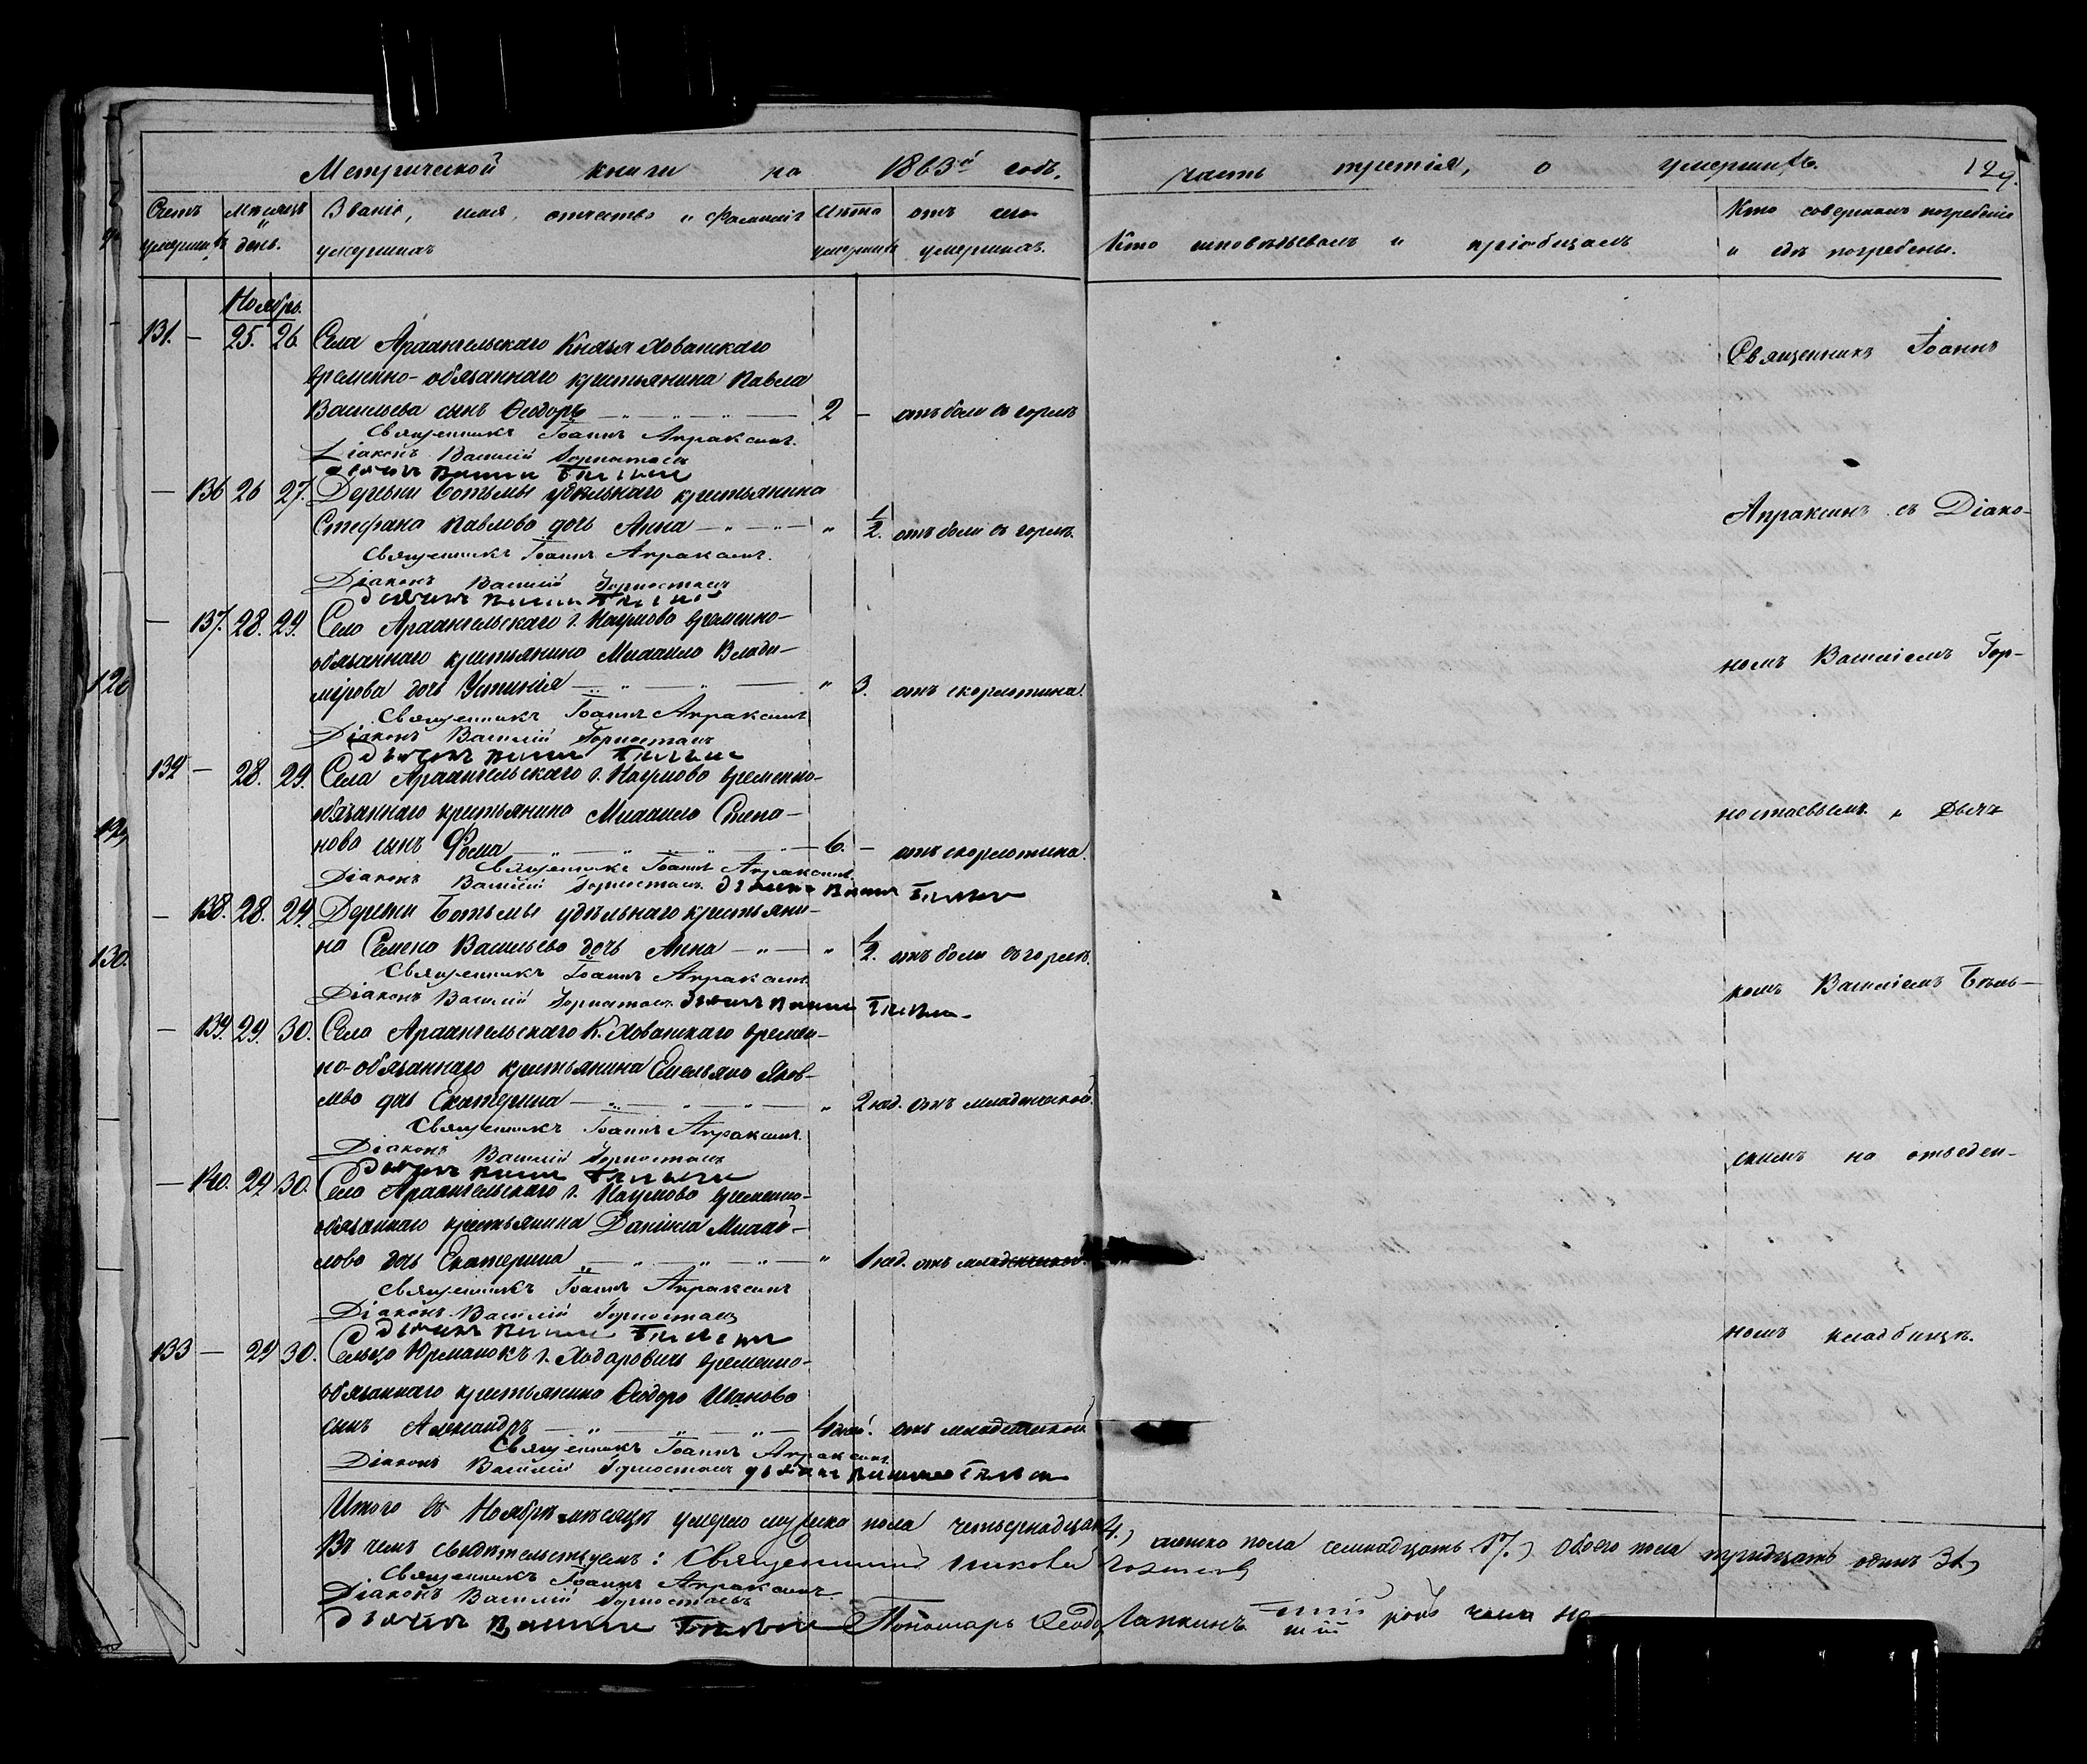 Метрической книги на 1863й годъ,
часть третія, о умершихъ.
129.
Счетъ умершихъ
Мѣсяцъ и день.
Званіе, имя, отчество и фамилія умершихъ
Лѣта умершихъ
отъ чего умершихъ.
Кто исповѣдывалъ и пріобщалъ
Кто совершалъ погребеніе и гдѣ погребены.
Ноябрь.
131. — 25. 26. Села Архангельскаго Князя Хованскаго
временно-обязаннаго крестьянина Павла
Васильева сынъ Ѳеодоръ — 2 — отъ боли въ горлѣ
Священникъ Іоаннъ Апраксинъ.
Діаконъ Василій Горностаевъ
— 136 26 27. Деревни Ботьмы удѣльнаго крестьянина
Стефана Павлова дочь Анна — " 1/2. отъ боли въ горлѣ.
Священникъ Іоаннъ Апраксинъ.
Діаконъ Василій Горностаевъ
— 137. 28. 29. Села Архангельскаго г. Наумова временно-
обязаннаго крестьянина Михаила Влади-
мірова дочь Устинія — " 3. отъ скорлотина.
Священникъ Іоаннъ Апраксинъ
Діаконъ Василій Горностаевъ
132 — 28. 29. Села Архангельскаго г. Наумова временно-
обязаннаго крестьянина Михаила Степа-
нова сынъ Фома — 6. — отъ скорлотина.
Священникъ Іоаннъ Апраксинъ.
Діаконъ Василій Горностаевъ
— 138. 28. 29. Деревни Ботьмы удѣльнаго крестьяни-
на Семена Васильева дочь Анна — " 1/2. отъ боли въ горлѣ.
Священникъ Іоаннъ Апраксинъ
Діаконъ Василій Горностаевъ
— 139. 29. 30. Села Архангельскаго К. Хованскаго времен-
но-обязаннаго крестьянина Емельяна Яков-
лева дочь Екатерина — " 2 нед. отъ младенческой.
Священникъ Іоаннъ Апраксинъ.
Діаконъ Василій Горностаевъ
— 140. 29 30. Села Архангельскаго г. Наумова временно-
обязаннаго крестьянина Даніила Михай-
лова дочь Екатерина — " 1 нед. отъ младенческой.
Священникъ Іоаннъ Апраксинъ
Діаконъ Василій Горностаевъ
133 — 29 30. Сельца Юрманокъ г. Ходаровичъ временно-
обязаннаго крестьянина Ѳеодора Иванова
сынъ Александръ — отъ младенческой
Священникъ Іоаннъ Апраксинъ.
Діаконъ Василій Горностаевъ
Священникъ Іоаннъ
Апраксинъ съ Діако-
номъ Василіемъ Гор-
ностаевымъ и Дьяч-
комъ Василіемъ Бѣль-
скимъ на отведен-
номъ кладбищѣ.
Итого въ Ноябрѣ мѣсяцѣ умерло мужеска пола четырнадцать 14.) женска пола семнадцать 17.) Обоего пола тридцать одинъ 31.)
Въ чемъ свидѣтельствуемъ: Священникъ
Священникъ Іоаннъ Апраксинъ.
Діаконъ Василій Горностаевъ
Пономарь Ѳеодоръ Лапкинъ